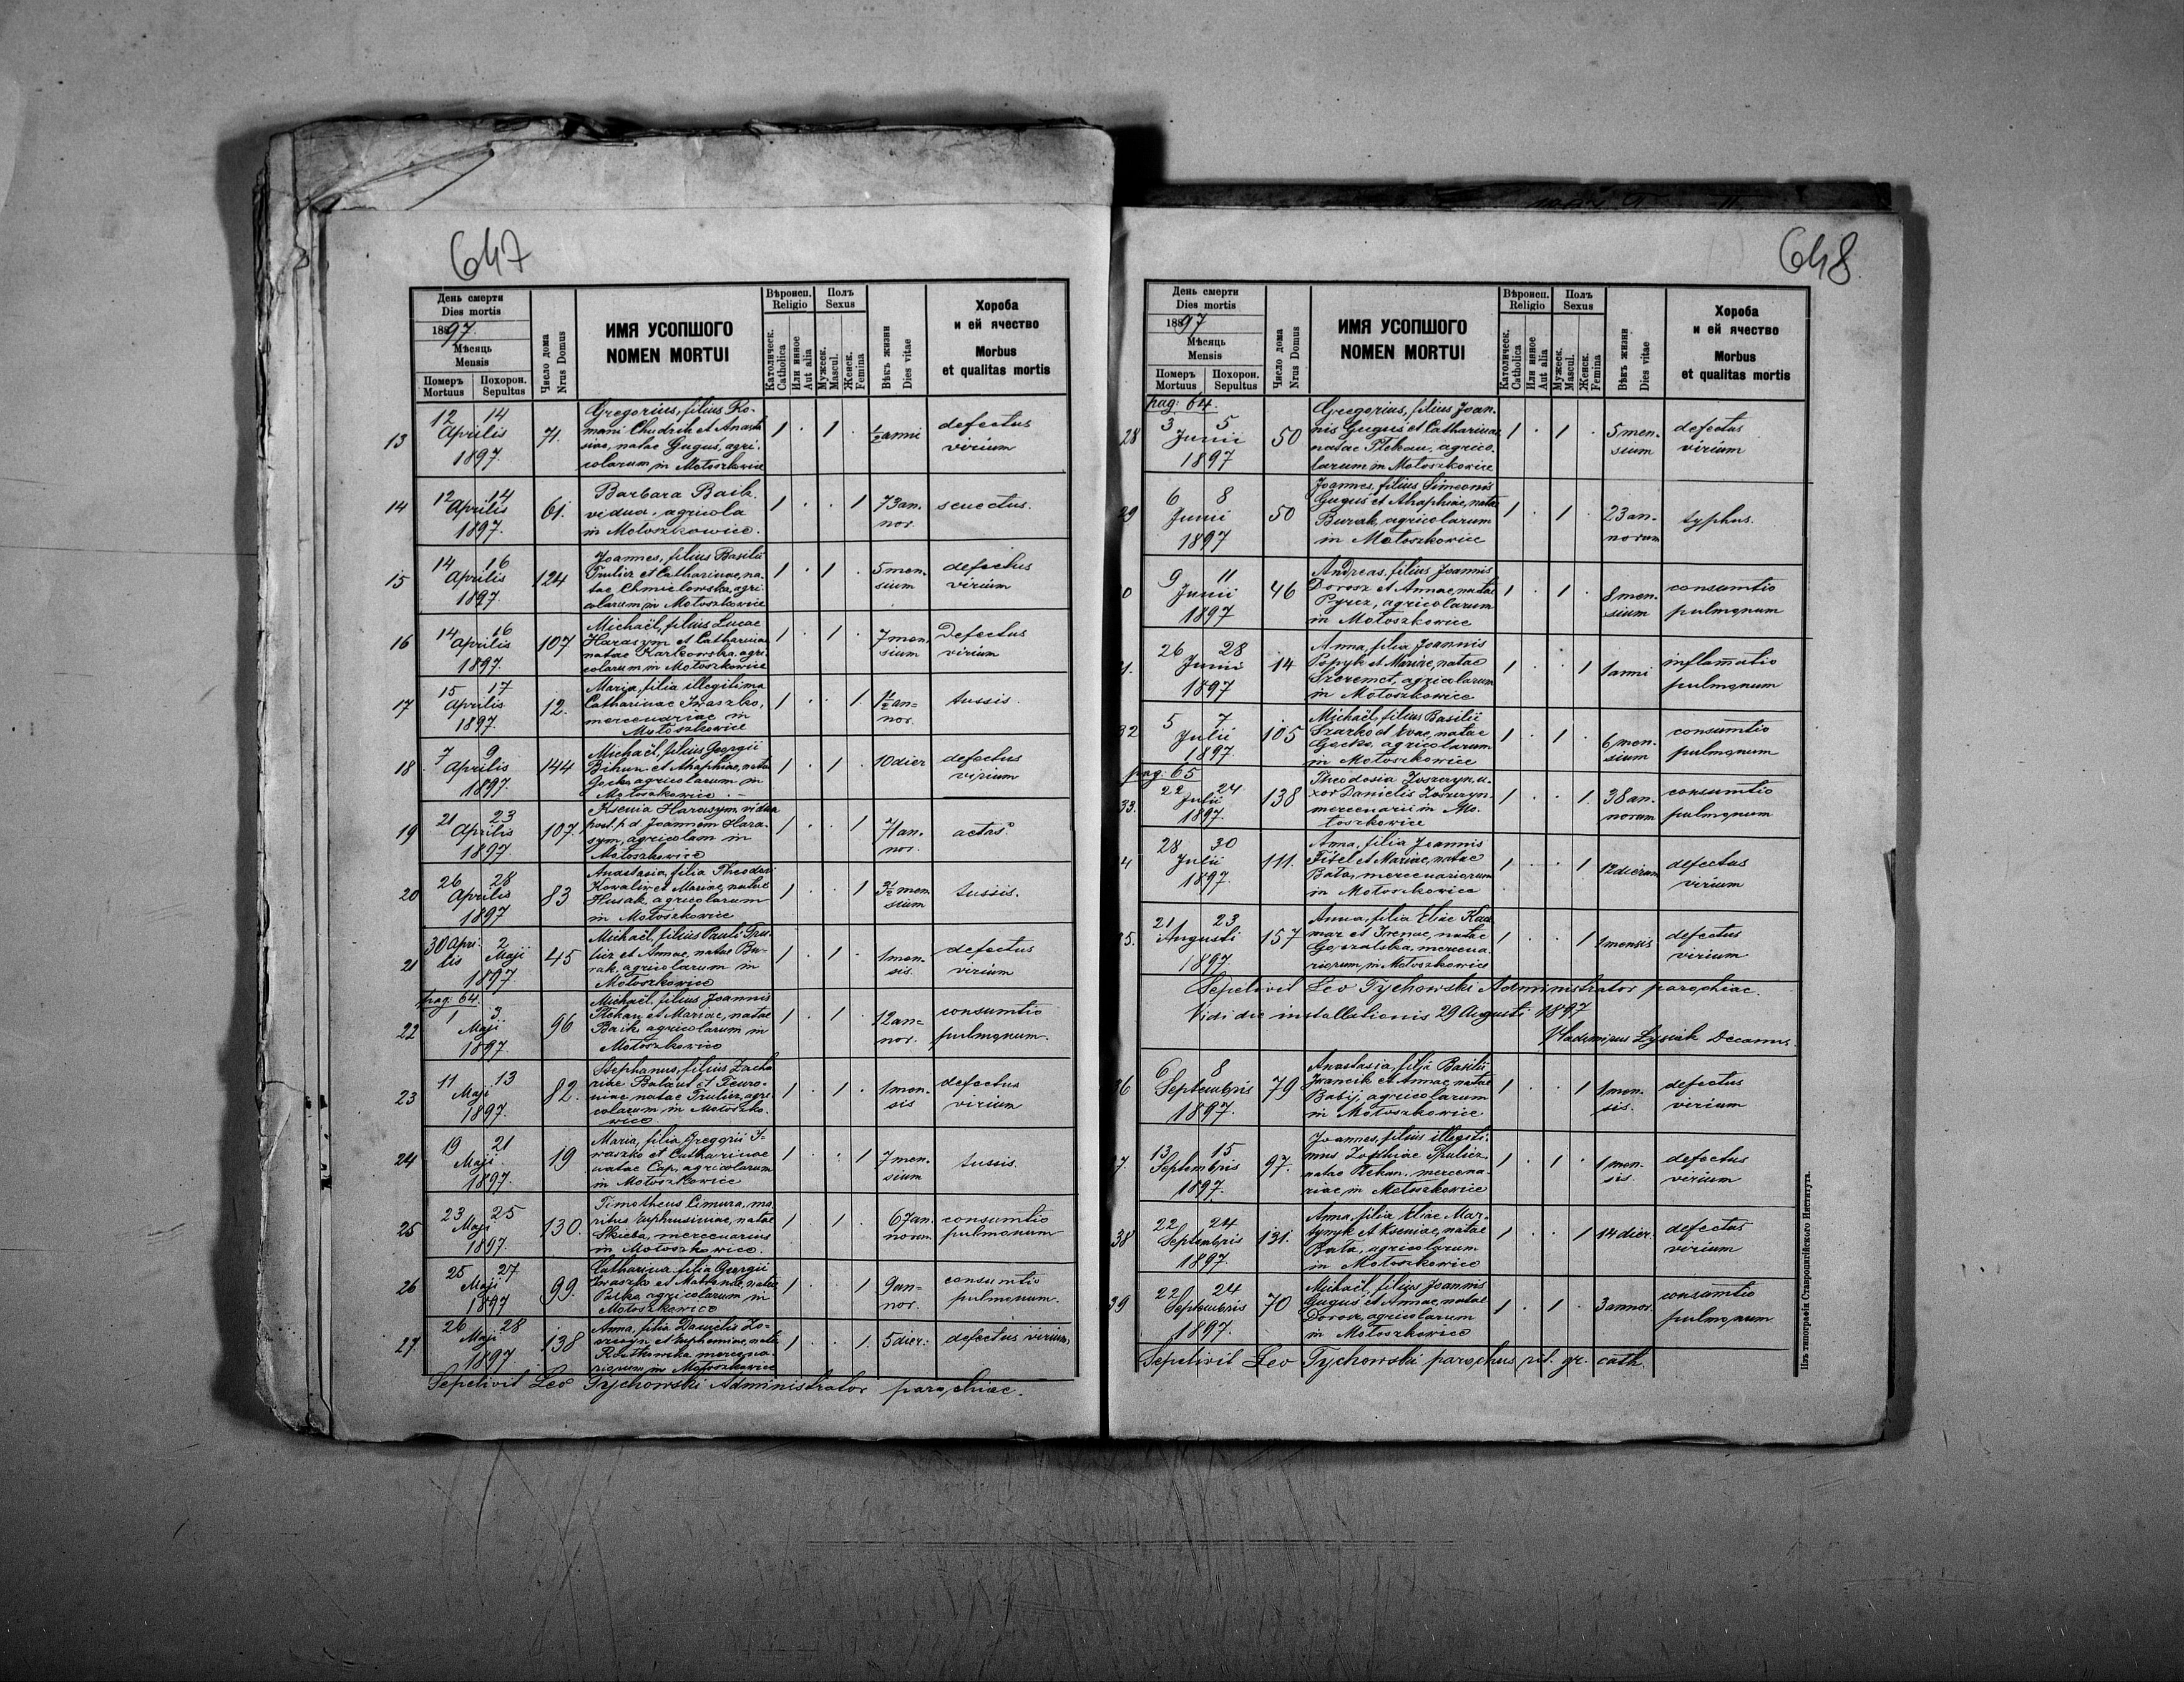 647
День смерти
Dies mortis
1897.
Мѣсяць
Mensis
Померъ
Mortuus
Похорон.
Sepultus
Число дома
Nrus Domus
ИМЯ УСОПШОГО
NOMEN MORTUI
Вѣроисп.
Religio
Католическ.
Catholica
Или инное
Aut alia
Полъ
Sexus
Мужеск.
Mascul.
Женск.
Femina
Вѣкъ жизни
Dies vitae
Хороба
и ей ячество
Morbus
et qualitas mortis
13
12 14
Aprilis
1897.
71.
Gregorius, filius Ro-
mani Chudzik et Anasta
siae, natae Guguś, agri-
colarum in Mołoszkowice
1 . 1 .
½ anni
defectus
virium
14
12 14
Aprilis
1897.
61.
Barbara Baik.
vidua, agricola
in Mołoszkowice.
1 . . 1
73 an-
nor.
senectus.
15
14 16
Aprilis
1897.
124
Joannes, filius Basilii
Trulicz et Catharinae, na-
tae Chmielowska, agri-
colarum in Mołoszkowice
1 . 1 .
5 men-
sium
defectus
virium
16
14 16
Aprilis
1897.
107
Michaël, filius Lucae
Harasym et Catharinae
natae Karkowska, agri-
colarum in Mołoszkowice
1 . 1 .
7 men-
sium
Defectus
virium
17
15 17
Aprilis
1897.
12.
Maria, filia illegitima
Catharinae Iwaszko,
mercenariae in
Mołoszkowice
1 . . 1.
1½ an-
nor.
tussis.
18
7 9
Aprilis
1897.
144
Michaël, filius Georgii
Bihun et Ahaphiae, nata
Gecko agricolarum in
Mołoszkowice. -
1 . 1 .
10 dier
defectus
virium
19
21 23
Aprilis
1897.
107.
Ksenia Harasym vidua
post. p. d. Joannem Hara-
sym, agricolam in
Mołoszkowice
1 . . 1
71 an-
nor.
aetas
20
26 28
Aprilis
1897
83
Anastasia, filia Theodori
Kowaliw et Mariae, natae
Husak, agricolarum
in Mołoszkowice
1 . . 1
3½ men
sium
tussis.
21
30 Apri- 2
lis Maji
1897
45
Michaël, filius Pauli Tru-
licz et Annae, natae Bu-
rak, agricolarum in
Mołoszkowice
1 . 1 .
1 men-
sis.
defectus
virium
pag: 64.
22
1 3.
Maji
1897.
96
Michaël, filius Joannis
Plekan et Mariae, natae
Baik agricolarum in
Mołoszkowice
1 . 1 .
12 an-
nor.
consumtio
pulmonum.
23
11 13
Maji
1897.
82.
Stephanus, filius Zacha
riae Bałaut et Feuro-
niae natae Trulicz, agri-
colarum, in Mołoszko-
wice.
1 . 1 .
1 men-
sis
defectus
virium
24
19 21
Maji
1897.
19
Maria, filia Gregorii I-
waszko et Catharinae
natae Cap, agricolarum
in Mołoszkowice
1 . . 1
7 men-
sium
tussis.
25
23 25
Maji
1897.
130.
Timotheus Cimura, ma-
ritus Euphrusiniae, natae
Skieba, mercenarius
in Mołoszkowice.
1 . 1 .
67 an.
norum.
consumtio
pulmonum
26
25 27
Maji
1897
99.
Catharina filia Georgii
Iwaszko et Matronae, natae
Paśko agricolarum in
Mołoszkowice
1 . . 1
9 an-
nor.
consumtio
pulmonum.
27.
26 28
Maji
1897
138
Anna, filia Danielis Zo-
szczyn et Euphemiae, nata
Rutkowska mercena-
riorum in Mołoszkowice
1 . . 1.
5 dier:
defectus virium
Sepelivit Leo Tychowski Administrator parochiae.
648.
День смерти
Dies mortis
1897
Мѣсяць
Mensis
Померъ
Mortuus
Похорон.
Sepultus
Число дома
Nrus Domus
ИМЯ УСОПШОГО
NOMEN MORTUI
Вѣроисп.
Religio
Католическ.
Catholica
Или инное
Aut alia
Полъ
Sexus
Мужеск.
Mascul.
Женск.
Femina
Вѣкъ жизни
Dies vitae
Хороба
и ей ячество
Morbus
et qualitas mortis
pag: 64.
28
3 5
Junii
1897
50
Gregorius, filius Joan-
nis Guguś et Catharinae
natae Plekan, agrico-
larum in Mołoszkowice
1 . 1 .
5 men-
sium
defectus
virium
29
6 8
Junii
1897
50
Joannes, filius Simeonis
Guguś et Ahaphiae, natae
Burak, agricolarum
in Mołoszkowice
1 . 1 .
23 an-
norum
typhus.
0
9 11
Junii
1897
46
Andreas, filius Joannis
Dorosz et Annae, natae
Pyrcz, agricolarum
in Mołoszkowice
1 . 1 .
8 men-
sium
consumtio
pulmonum
1.
26 28
Junii
1897
14
Anna, filia Joannis
Popyk et Mariae, natae
Szeremet, agricolarum
in Mołoszkowice
1 . . 1
1 anni
inflamatio
pulmonum
32
5 7
Julii
1897.
105
Michaël, filius Basilii
Szarko et Evae, natae
Gecko, agricolarum
in Mołoszkowice
1 . 1 .
6 men-
sium
consumtio
pulmonum
pag: 65
33.
22 24
Julii
1897.
138
Theodosia Zoszczyn u-
xor Danielis Zoszczyn.
mercenarii in Mo-
łoszkowice
1 . . 1.
38 an-
norum
consumtio
pulmonum
4
28 30
Julii
1897.
111.
Anna, filia Joannis
Fitel et Mariae, natae
Bała, mercenariorum
in Mołoszkowice
1 . . 1
12 dierum
defectus
virium
5.
21 23
Augusti
1897.
157
Anna, filia Eliae Kaz-
mar et Irenae, natae
Goszalska, mercena-
riorum, in Mołoszkowice
1 . . 1
1 mensis
defectus
virium
Sepelivit Leo Tychowski Administrator parochiae.
Vidi die installationis 29 Augusti 1897
Vladimirus Lysiak Decanus.
6
6 8
Septembris
1897.
79
Anastasia, filia Basilii
Iwancik et Annae, natae
Babij, agricolarum
in Mołoszkowice
1 . . 1
1 men-
sis.
defectus
virium
7.
13 15
Septembris
1897.
97.
Joannes, filius illegiti-
mus Zophiae Trulicz,
natae Plekan, mercena-
riae in Mołoszkowice
1 . 1 .
1 men-
sis.
defectus
virium
38
22 24
Septembris
1897.
131.
Anna, filia Eliae Mar-
tynyk et Kseniae, natae
Bała, agricolarum
in Mołoszkowice
1 . . 1
14 dier.
defectus
virium
39
22 24
Septembris
1897.
70
Michaël, filius Joannis
Guguś et Annae, natae
Dorosz, agricolarum
in Mołoszkowice
1 . 1 .
3 annor.
consumtio
pulmonum
Sepelivit Leo Tychowski parochus rit. gr. cath.
Изъ типографіи Ставропигійского Института.